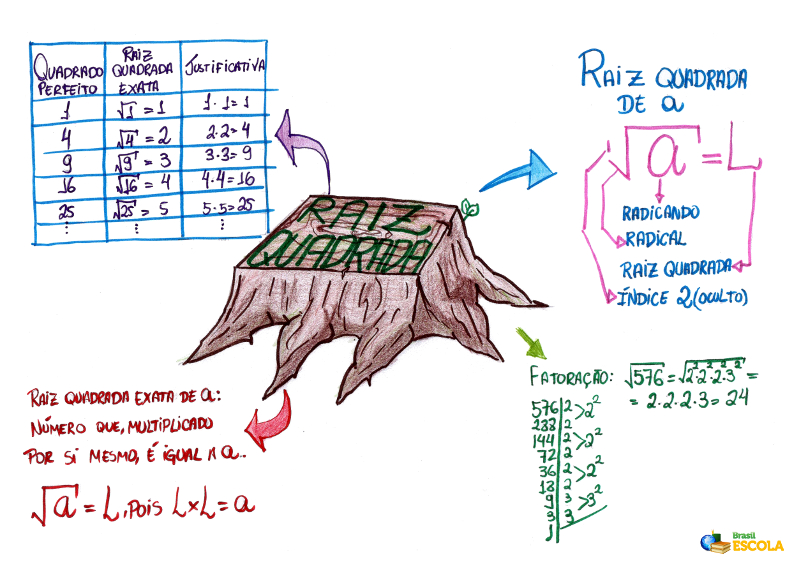 QUADRADO PERFEITO | RAIZ QUADRADA EXATA | JUSTIFICATIVA
1 | √1 = 1 | 1·1=1
4 | √4 = 2 | 2·2=4
9 | √9 = 3 | 3·3=9
16 | √16 = 4 | 4·4=16
25 | √25 = 5 | 5·5=25
⋮ | ⋮ | ⋮
RAIZ
QUADRADA
RAIZ QUADRADA
DE a
√a = L
RADICANDO
RADICAL
RAIZ QUADRADA
ÍNDICE 2 (OCULTO)
RAIZ QUADRADA EXATA DE a:
NÚMERO QUE, MULTIPLICADO
POR SI MESMO, É IGUAL A a..
√a = L, POIS L×L = a
FATORAÇÃO: √576 = √2²·2²·2²·3² =
= 2·2·2·3 = 24
576 | 2 > 2²
288 | 2
144 | 2 > 2²
72 | 2
36 | 2 > 2²
18 | 2
9 | 3 > 3²
3 | 3
1
Brasil
ESCOLA